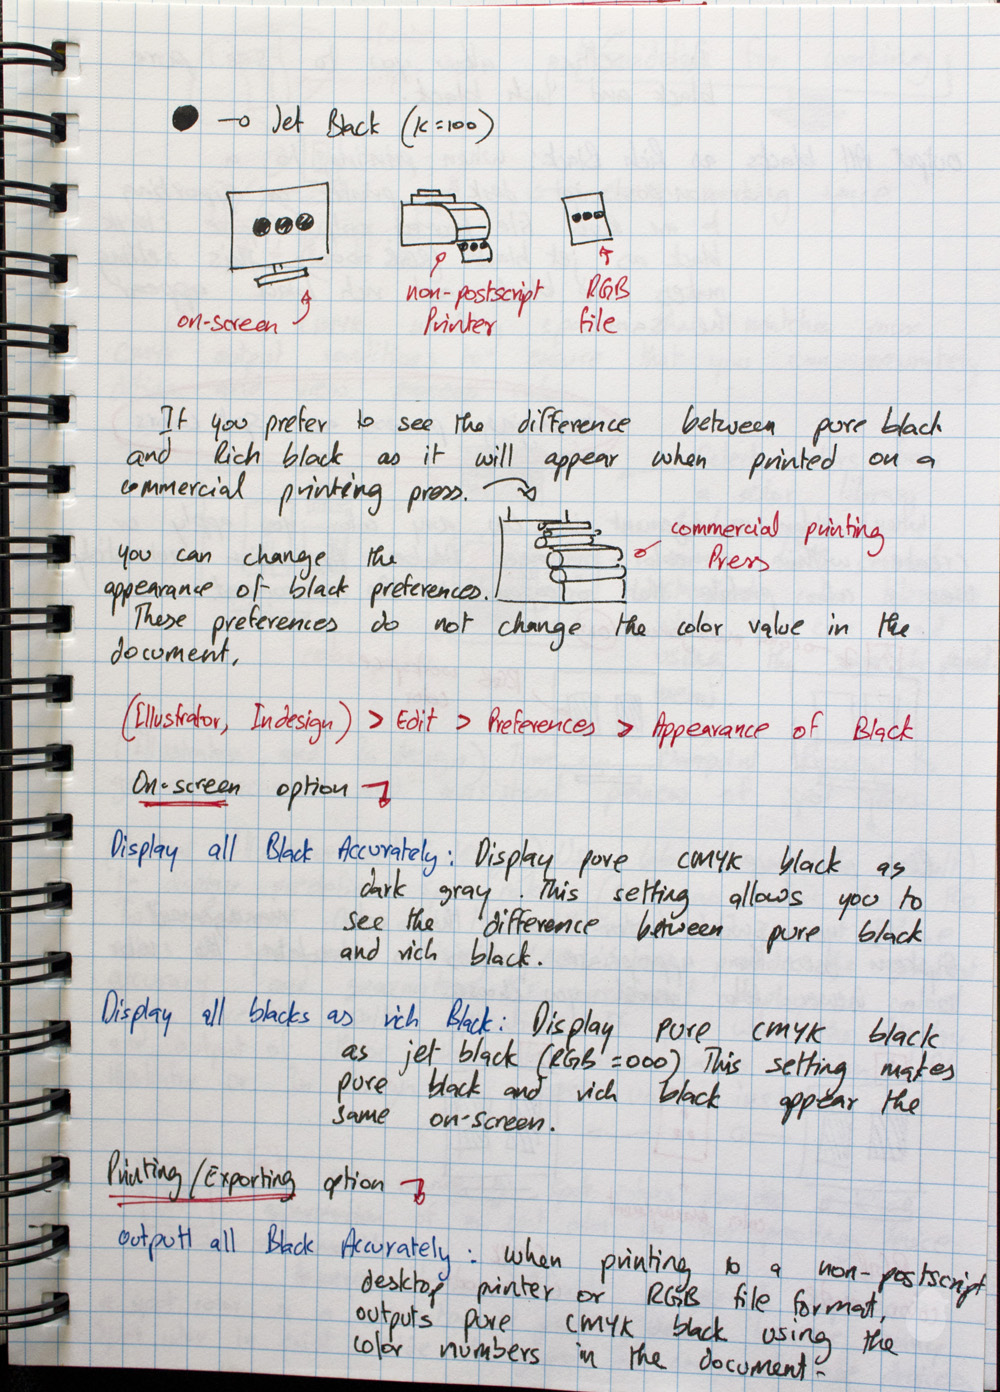 Jet Black (K=100)
on-screen
non-postscript
Printer
RGB
file
If you prefer to see the difference between pure black
and Rich black as it will appear when printed on a
commercial printing press.
commercial printing
Press
you can change the
appearance of black preferences.
These preferences do not change the color value in the
document.
(Illustrator, Indesign) > Edit > Preferences > Appearance of Black
On-screen option
Display all Black Accurately: Display pure CMYK black as
dark gray. This setting allows you to
see the difference between pure black
and rich black.
Display all blacks as rich Black: Display pure CMYK black
as jet black (RGB=000) This setting makes
pure black and rich black appear the
same on-screen.
Printing/Exporting option
outputl all Black Accurately: when printing to a non-postscript
desktop printer or RGB file format,
outputs pure CMYK black using the
color numbers in the document.